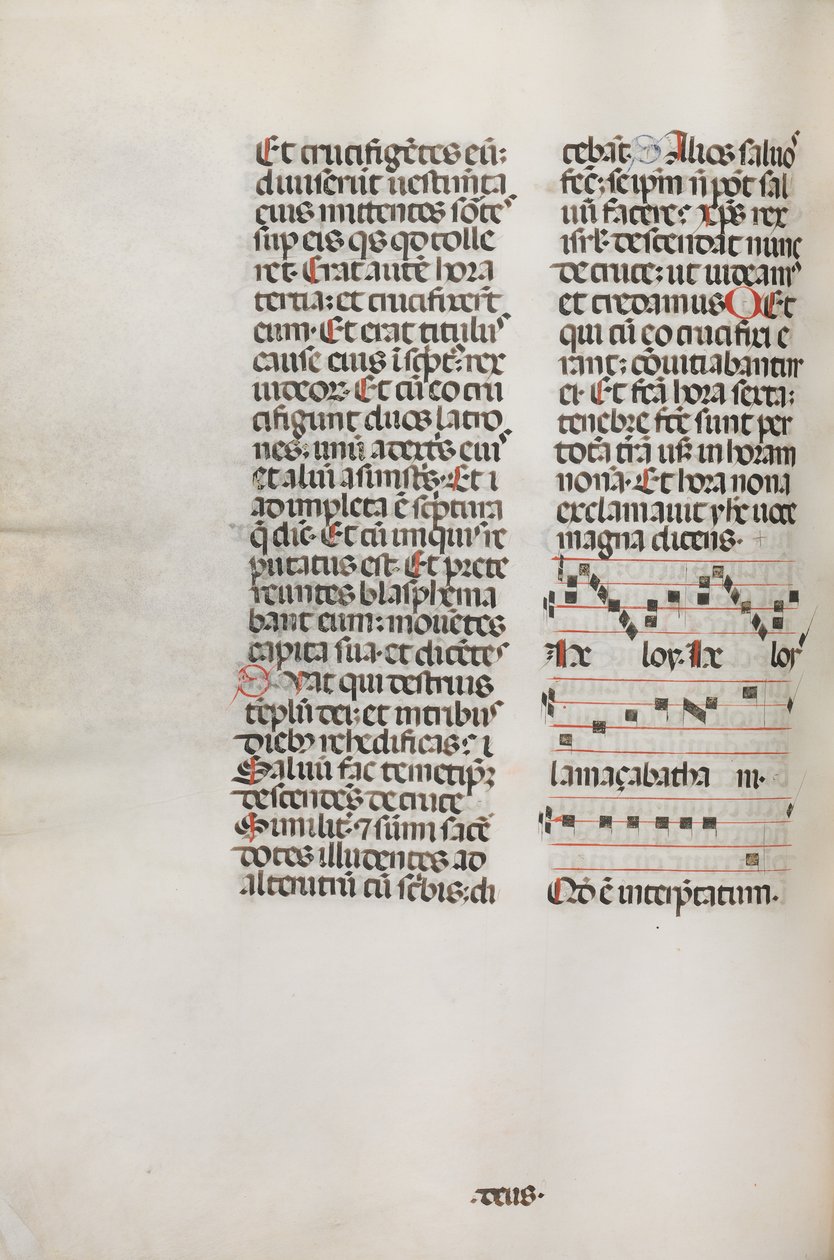 Et crucifigẽtes eũ:
diuiserũt uestimẽta
eius mittentes sõtẽˢ
sup eis q̃s qd̃ tolle
ret. Erat autẽ hora
tertia: et crucifixerũt
eum. Et erat titulus
cause eius ĩscp̃t: rex
iudeoꝝ. Et cũ eo cru
cifigunt duos latro
nes: unũ a dextꝭs eius
et aliũ a sinistꝭs. Et ĩ
adimpleta ẽ scp̃tura
q̃ dic̃. Et cũ iniquis re
putatus est. Et prete
reuntes blasphema
bant eum: mouẽtes
capita sua. et dicẽtes
Vat qui destruis
tẽplũ dei: et ĩ tribus
diebꝫ rehedificas: ĩ
Saluũ fac temetip̃ꝫ
descendẽs de cruce
Similit̃. ⁊ sũmi sac̃e
dotes illudentes ad
alterutrũ cũ sc̃bis: di
cebãt. Alios saluos
fec̃: seip̃m ñ põt sal
uũ facere: xp̃s rex
isrl̃. descendat nunc
de cruce: ut uideamus
et credamus Et
qui cũ eo crucifixi e
rant: cõuitiabantur
ei. Et fc̃a hora sexta:
tenebre fc̃e sunt per
totã t̃rã usꝫ in horam
nonã. Et hora nona
exclamauit yhc̃ uoce
magna dicens.
loy. loy
lamaçabatha ni.
Qd̃ ẽ interp̃tatum.
.deus.